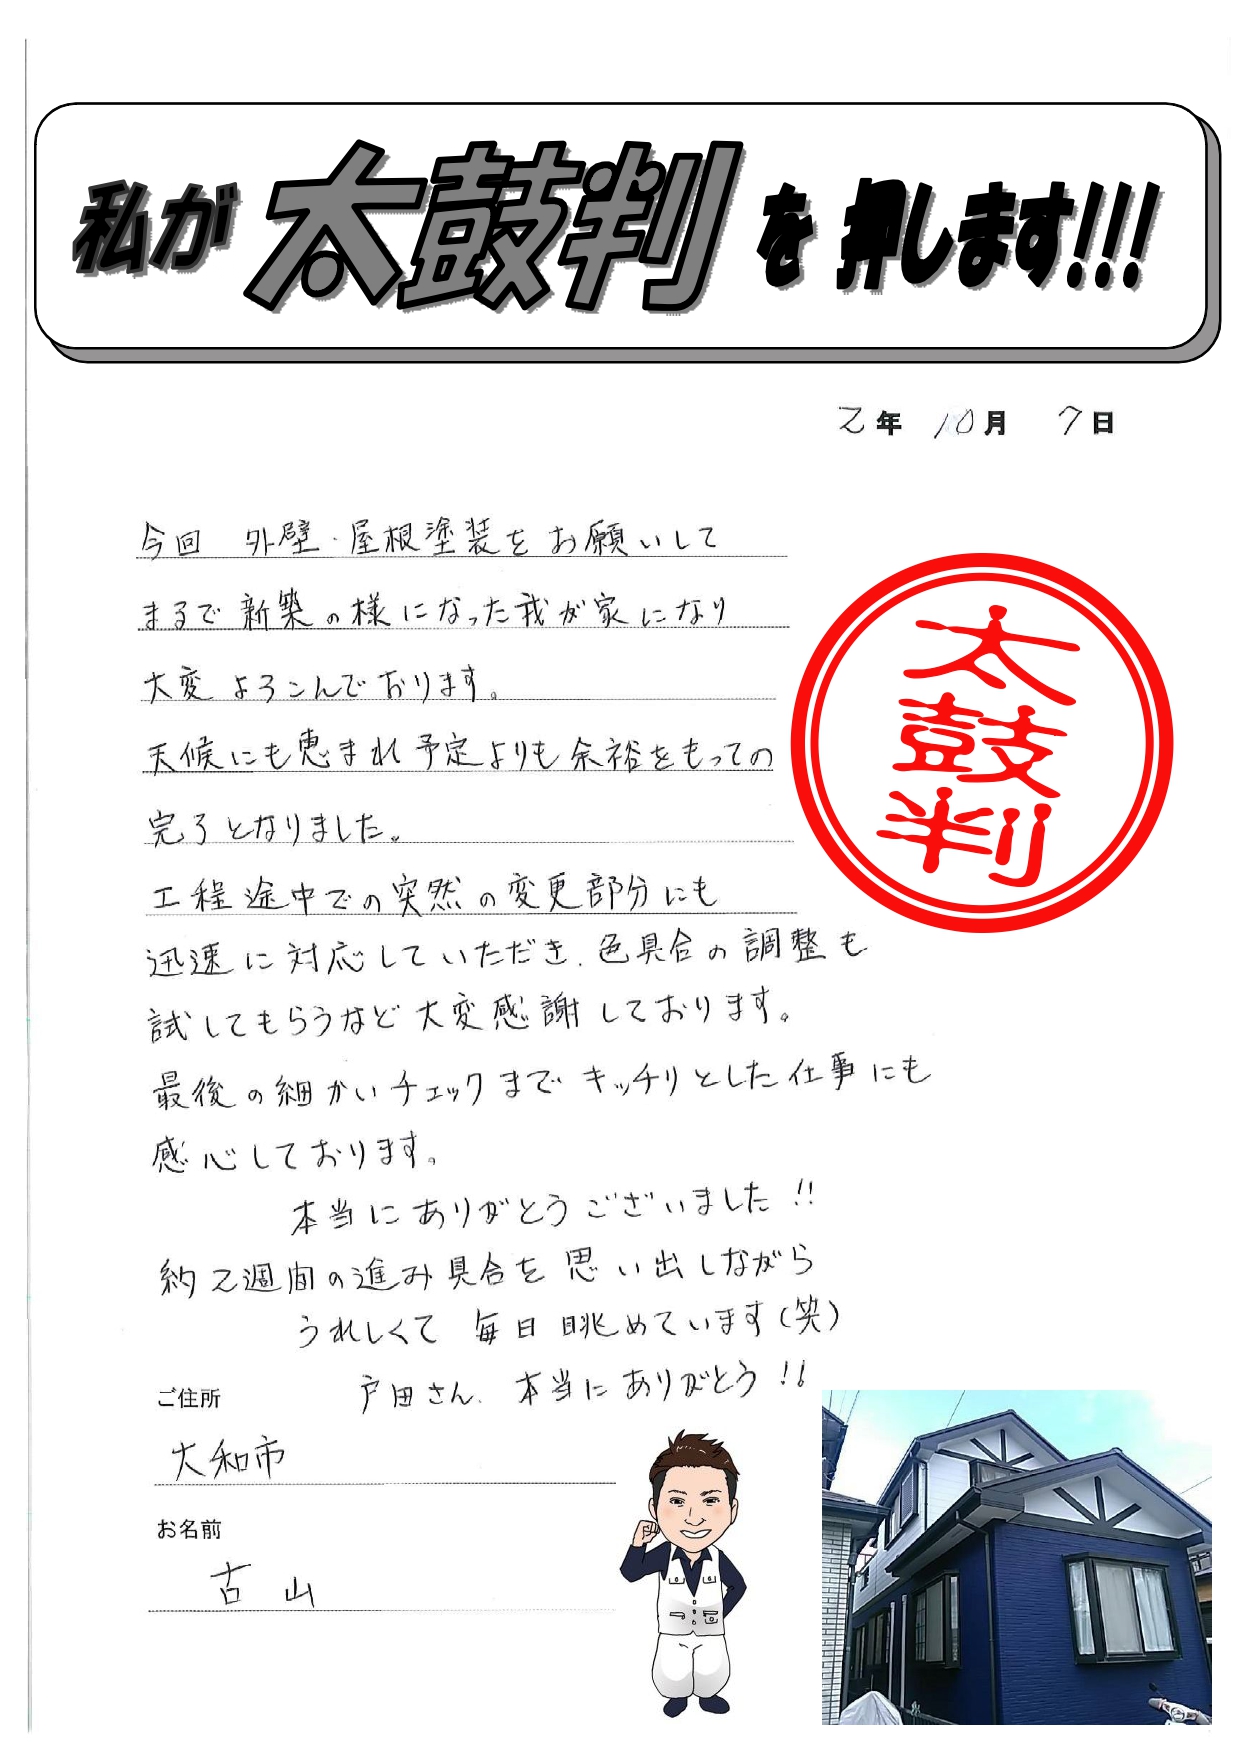 私が太鼓判を押します!!!
2年 10月 7日
今回 外壁・屋根塗装をお願いして
まるで新築の様になった我が家になり
大変よろこんでおります。
天候にも恵まれ予定よりも余裕をもっての
完了となりました。
工程途中での突然の変更部分にも
迅速に対応していただき、色具合の調整も
試してもらうなど大変感謝しております。
最後の細かいチェックまでキッチリとした仕事にも
感心しております。
本当にありがとうございました!!
約2週間の進み具合を思い出しながら
うれしくて 毎日眺めています(笑)
戸田さん、本当にありがとう!!
太鼓判
ご住所
大和市
お名前
古山